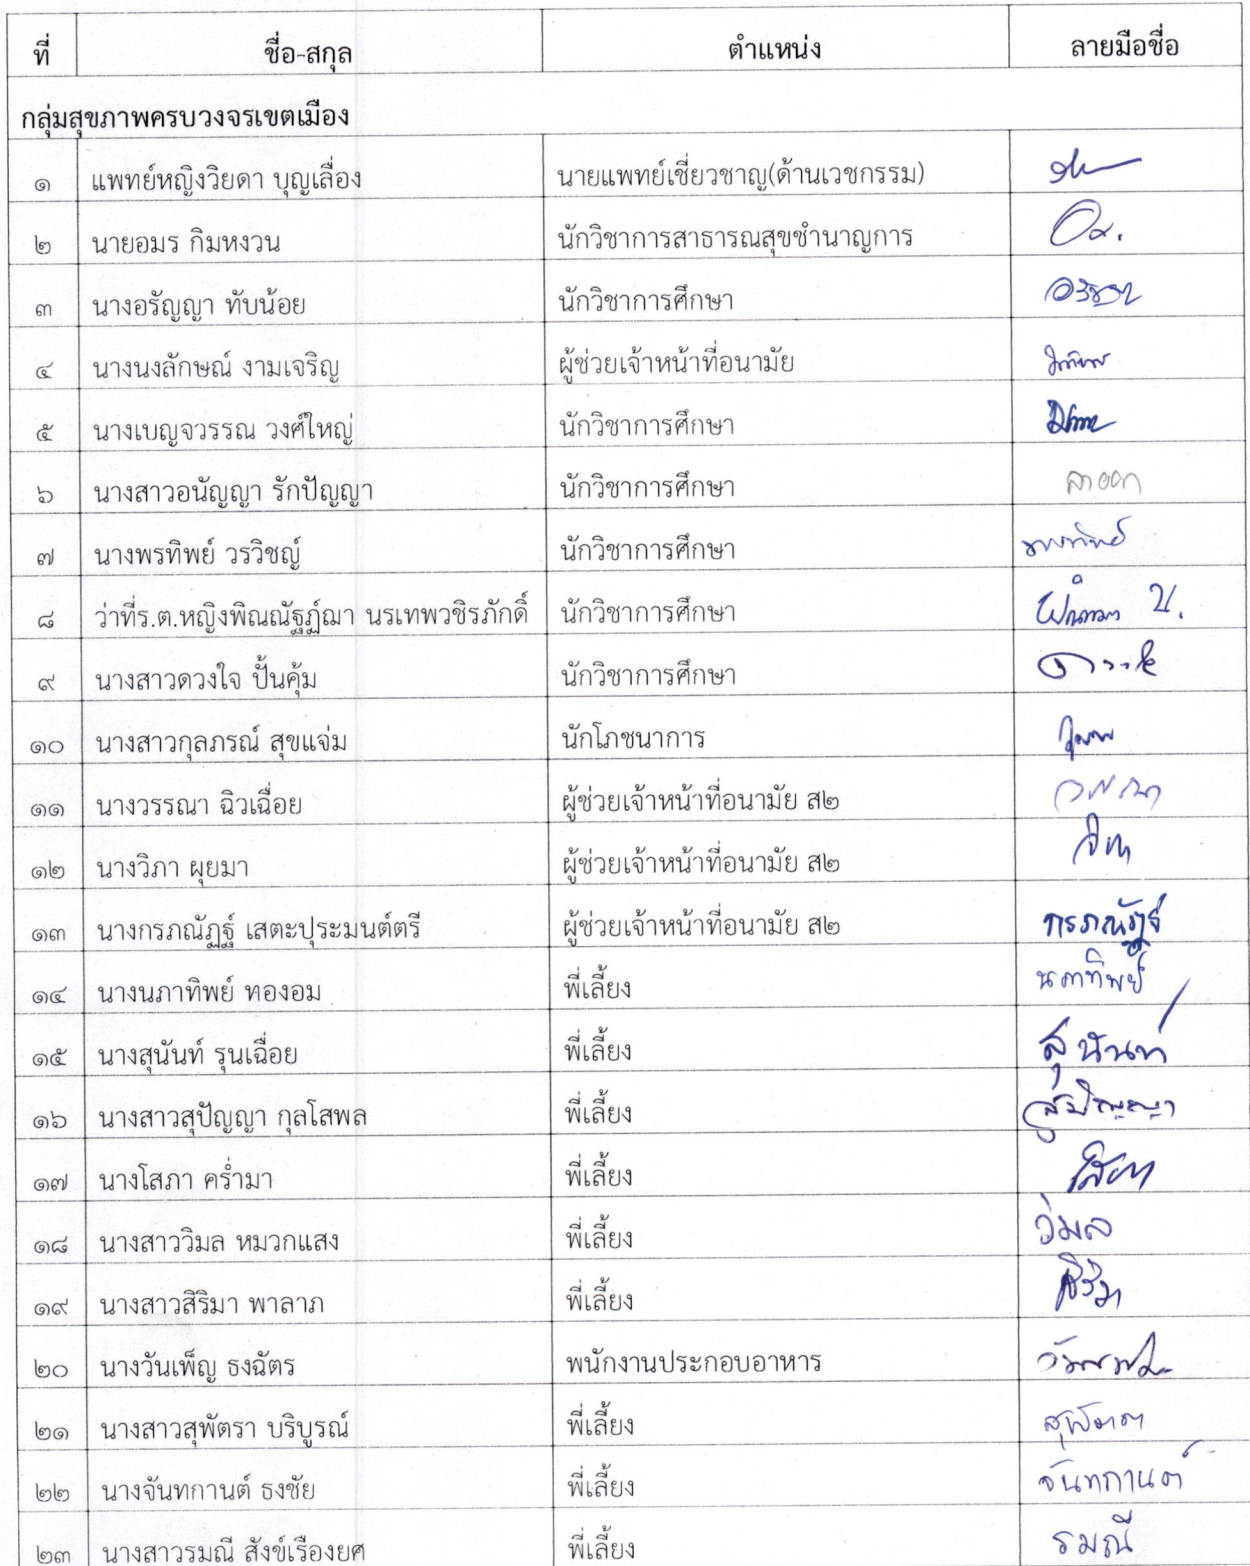 ที่ ชื่อ-สกุล ตำแหน่ง ลายมือชื่อ
กลุ่มสุขภาพครบวงจรเขตเมือง
๑ แพทย์หญิงวิยดา บุญเลื่อง นายแพทย์เชี่ยวชาญ(ด้านเวชกรรม)
๒ นายอมร กิมหงวน นักวิชาการสาธารณสุขชำนาญการ
๓ นางอรัญญา ทับน้อย นักวิชาการศึกษา
๔ นางนงลักษณ์ งามเจริญ ผู้ช่วยเจ้าหน้าที่อนามัย
๕ นางเบญจวรรณ วงศ์ใหญ่ นักวิชาการศึกษา
๖ นางสาวอนัญญา รักปัญญา นักวิชาการศึกษา
๗ นางพรทิพย์ วรวิชญ์ นักวิชาการศึกษา พรทิพย์
๘ ว่าที่ร.ต.หญิงพิณณัฐฏ์ฌา นรเทพวชิรภักดิ์ นักวิชาการศึกษา
๙ นางสาวดวงใจ ปั้นคุ้ม นักวิชาการศึกษา
๑๐ นางสาวกุลภรณ์ สุขแจ่ม นักโภชนาการ
๑๑ นางวรรณา ฉิวเฉื่อย ผู้ช่วยเจ้าหน้าที่อนามัย ส๒
๑๒ นางวิภา ผุยมา ผู้ช่วยเจ้าหน้าที่อนามัย ส๒
๑๓ นางกรภณัฏฐ์ เสตะปุระมนต์ตรี ผู้ช่วยเจ้าหน้าที่อนามัย ส๒ กรภณัฏฐ์
๑๔ นางนภาทิพย์ ทองอม พี่เลี้ยง นภาทิพย์
๑๕ นางสุนันท์ รุนเฉื่อย พี่เลี้ยง สุนันท์
๑๖ นางสาวสุปัญญา กุลโสพล พี่เลี้ยง สุปัญญา
๑๗ นางโสภา คร่ำมา พี่เลี้ยง โสภา
๑๘ นางสาววิมล หมวกแสง พี่เลี้ยง วิมล
๑๙ นางสาวสิริมา พาลาภ พี่เลี้ยง สิริมา
๒๐ นางวันเพ็ญ ธงฉัตร พนักงานประกอบอาหาร
๒๑ นางสาวสุพัตรา บริบูรณ์ พี่เลี้ยง สุพัตรา
๒๒ นางจันทกานต์ ธงชัย พี่เลี้ยง จันทกานต์
๒๓ นางสาวรมณี สังข์เรืองยศ พี่เลี้ยง รมณี